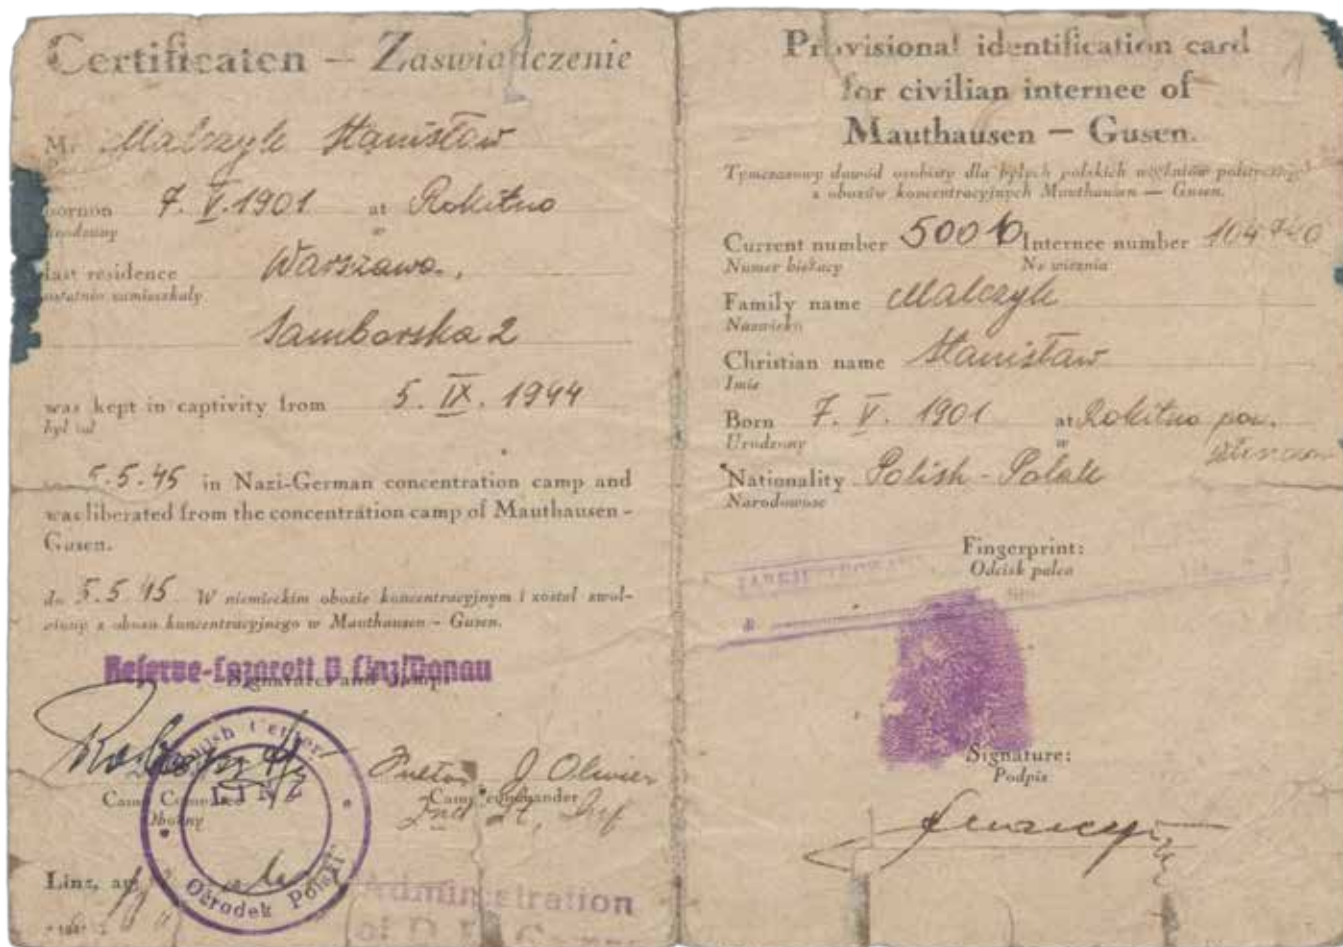 Certificaten – Zaswiadczenie
Mr. Malczyk Stanisław
bornon 7. V. 1901 at Rokitno
urodzony w
last residence Warszawa,
ostatnio zamieszkały
Samborska 2
was kept in captivity from 5. IX. 1944
był od
5.5.45 in Nazi-German concentration camp and
was liberated from the concentration camp of Mauthausen –
Gusen.
do 5.5.45 W niemieckim obozie koncentracyjnym i został zwol-
niony z obozu koncentracyjnego w Mauthausen – Gusen.
Reserve-Lazarett B Linz/Donau
Signatures and
Polish Center
LINZ
Ośrodek Polski
J Olivier
Camp
Camp commander
2nd Lt, Inf
Linz,
Administration
of D. P.
Provisional identification card
for civilian internee of
Mauthausen – Gusen.
Tymczasowy dowód osobisty dla byłych polskich więźniów politycznych
z obozów koncentracyjnych Mauthausen — Gusen.
Current number 5006 Internee number 104740
Numer bieżący Nr wieznia
Family name Malczyk
Nazwisko
Christian name Stanisław
Imie
Born 7. V. 1901 at Rokitno pow.
Urodzony w
Nationality Polish - Polak
Narodowosc
Fingerprint:
Odcisk palca
Signature:
Podpis